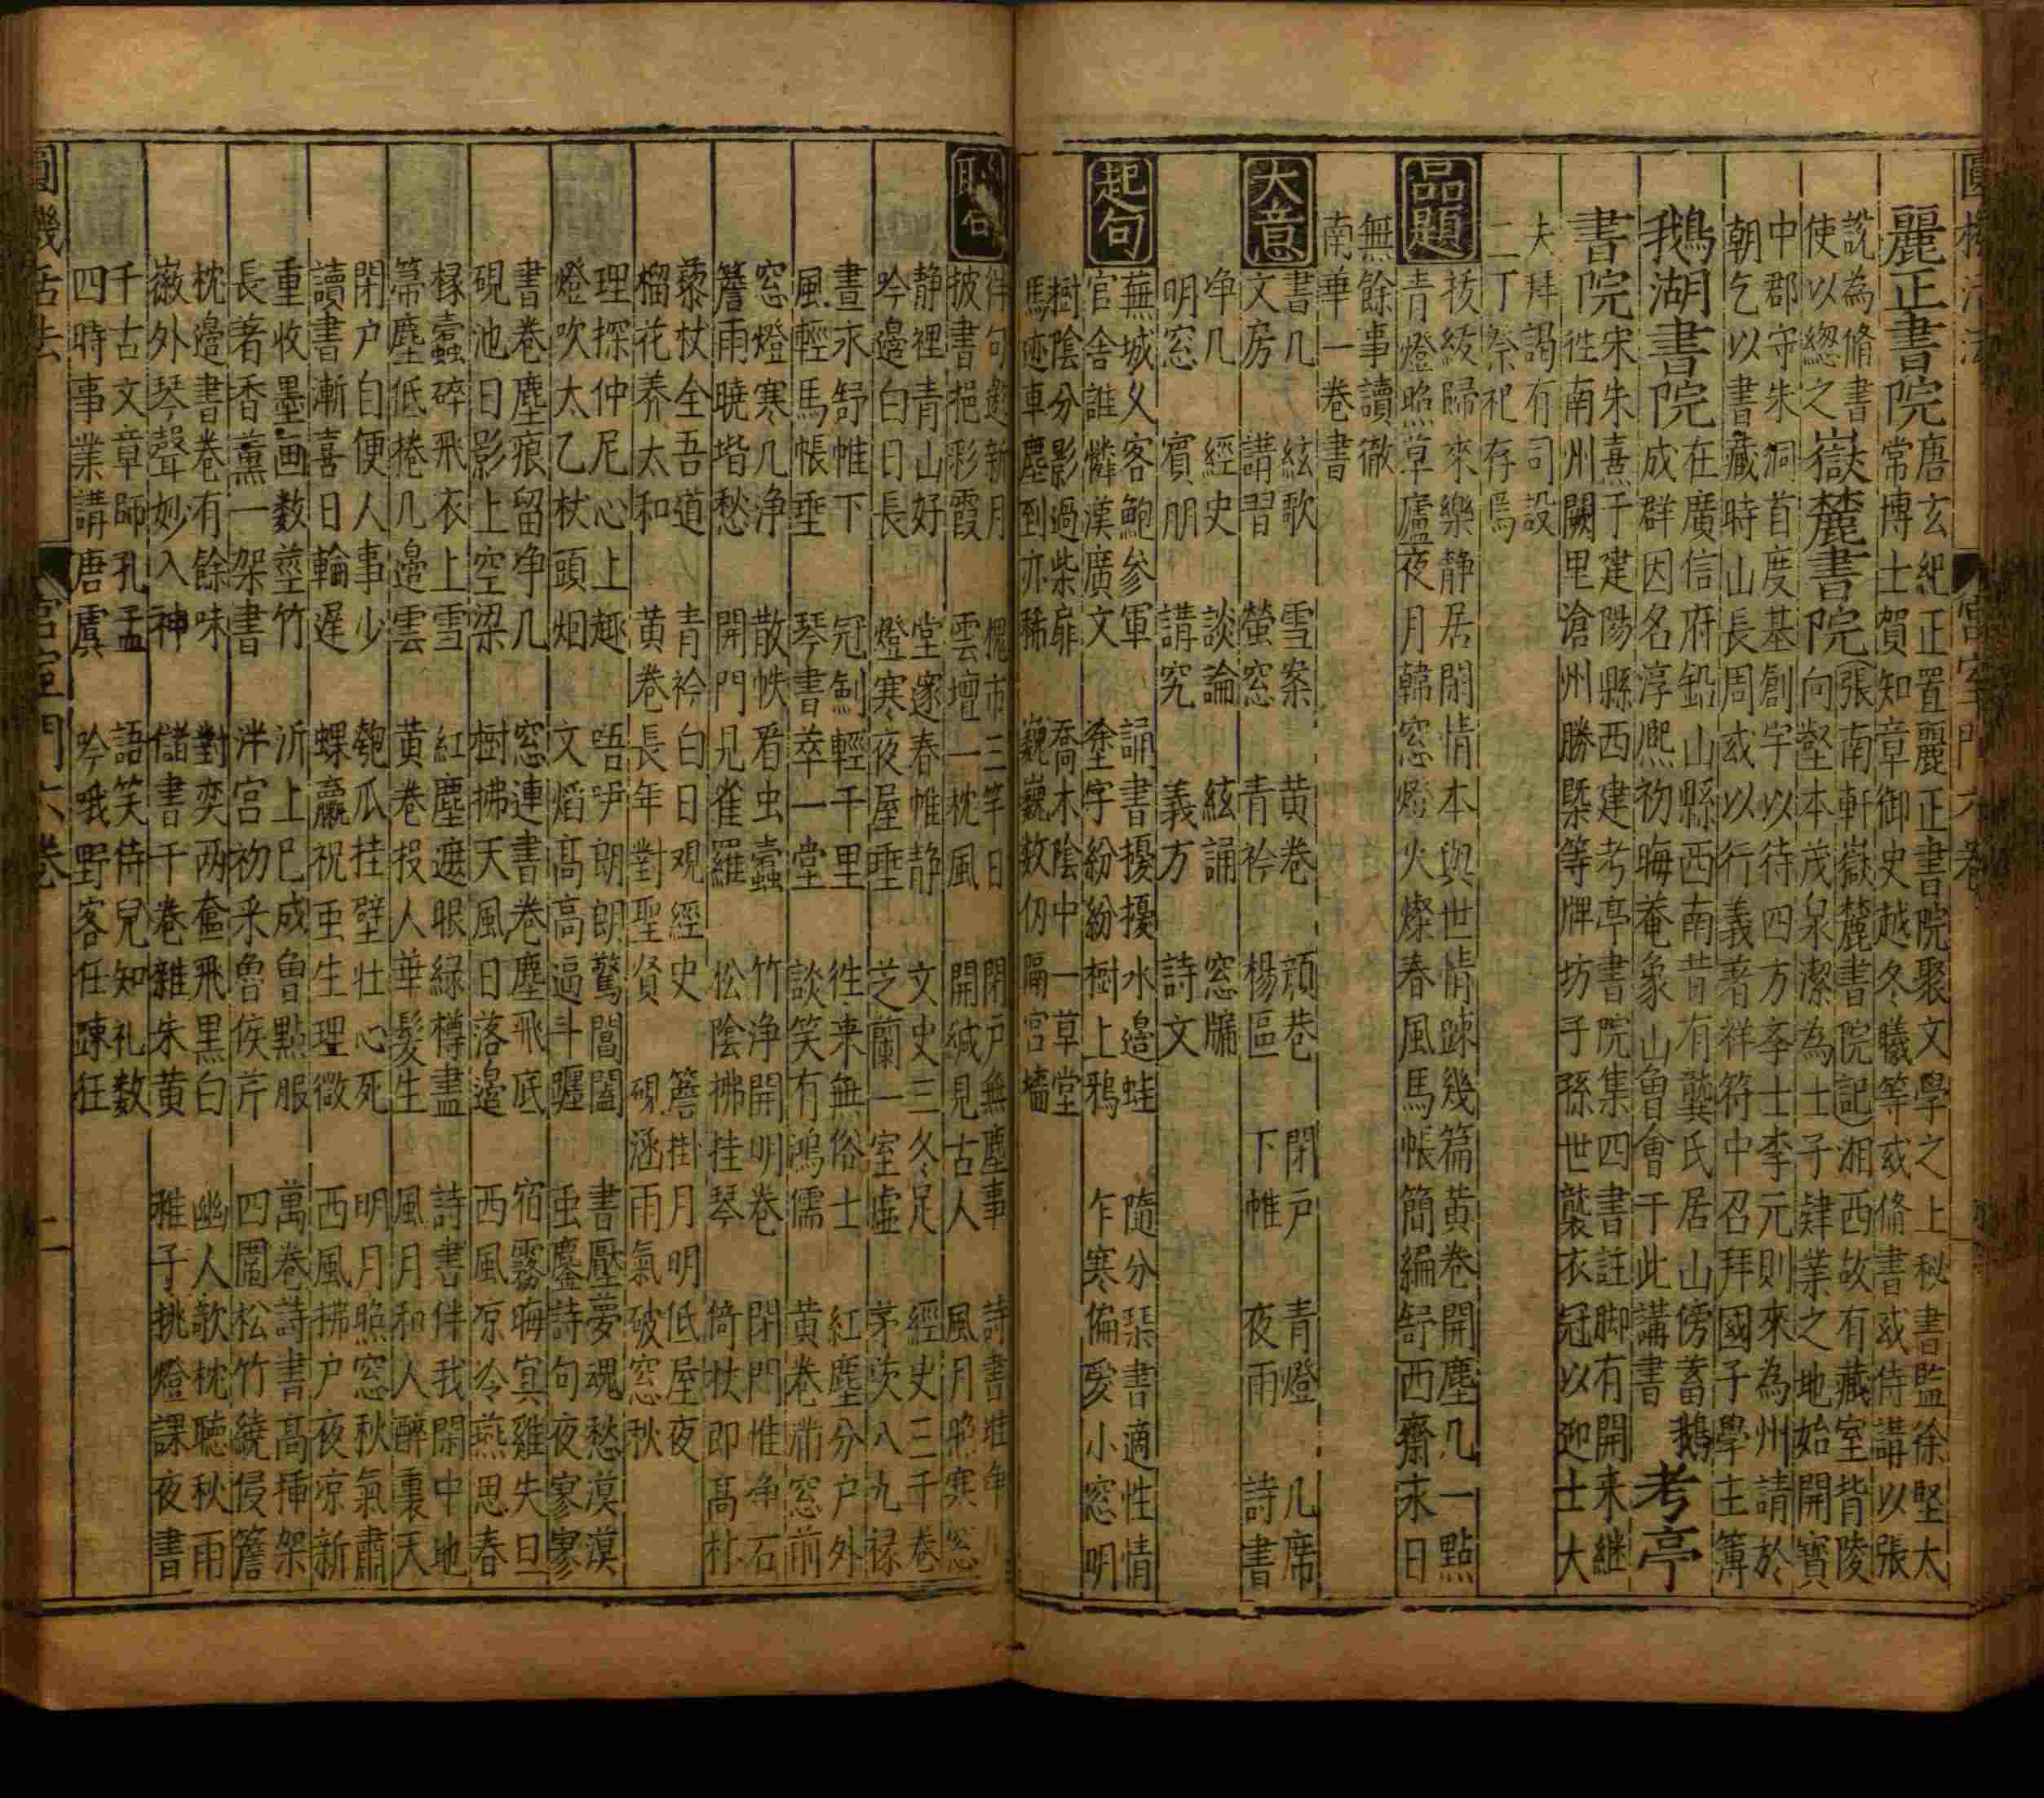 圓機活法 宮室門六卷
麗正書院
唐玄紀正置麗正書院聚文學之上秘書監徐堅太
常博士賀知章御史越冬曦等或脩書或侍講以張
說為脩書
使以總之
嶽麓書院
(張南軒嶽麓書院記)湘西故有藏室皆陵
向壑本茂泉潔為士子肄業之地始開寶
中郡守朱洞首度基創宇以待四方李士李元則來為州請於
朝乞以書藏時山長周或以行義著祥符中召拜國子學主簿
鵝湖書院
在廣信府鉛山縣西南昔有龔氏居山傍蓄鵝
成群因名淳熈初晦菴象山魯會于此講書
考亭
書院
宋朱熹于建陽縣西建考亭書院集四書註脚有開来継
徃南州闕里滄州勝槩等牌坊子孫世襲衣冠以迎士大
夫拜謁有司設
二丁祭祀存焉
品題
拔紱歸來樂静居閑情本與世情踈幾篇黃卷開塵几一點
青燈照草廬夜月韓窓燈火燦春風馬帳簡編舒西齋永日
無餘事讀徹
南華一卷書
大意
書几 絃歌 雪案 黃卷 顔巷 閉戸 青燈 几席
文房 講習 螢窓 青衿 楊區 下帷 夜雨 詩書
净几 經史 談論 絃誦 窓牖
明窓 賓朋 講究 義方 詩文
起句
蕪城乆客鮑參軍 誦書擾擾水邉蛙 隨分琹書適性情
官舍誰憐漢廣文 塗字紛紛樹上鴉 乍寒偏愛小窓明
樹陰分影過柴扉 喬木陰中一草堂
馬迹車塵到亦稀 巍巍数仞隔宮墻
聯句
句邀新月 槐市三竿日 閉戸無塵事 詩書堆
披書挹彩霞 雲壇一枕風 開緘見古人 風月照寒窓
静裡青山好 堂邃春帷静 文史三冬足 經史三千卷
吟邉白日長 燈寒夜屋埀 芝蘭一室虚 茅茨八九椽
晝永舒帷下 冠劍輕千里 徃来無俗士 紅塵分户外
風輕馬帳垂 琴書萃一堂 談笑有鴻儒 黃卷滿窓前
窓燈寒几净 散帙看虫蠹 竹净開明卷 閉門惟净石
簷雨曉堦愁 開門見雀羅 松陰拂挂琴 倚杖即高林
藜杖全吾道 青衿白日观經史 簷掛月明低屋夜
榴花养太和 黃卷長年對聖贤 硯涵雨氣破窓秋
理探仲尼心上趣 唔咿朗朗驚閶闔 書壓夢魂愁漠漠
燈吹太乙杖頭烟 文熖髙高逼斗躔 虫鏖詩句夜寥寥
書卷塵痕留净几 窓連書卷塵飛底 宿霧晦冥雞失旦
硯池日影上空梁 樹拂天風日落邉 西風凉冷燕思春
椽蠹碎飛衣上雪 紅塵遮眼緑樽盡 詩書伴我閑中地
箒塵低捲几邉雲 黃卷投人華髮生 風月和人醉裏天
閉户自便人事少 匏瓜挂壁壮心死 明月照窓秋氣肅
讀書漸喜日輪遲 蜾蠃祝虫生理微 西風拂户夜凉新
重收墨画数莖竹 沂上巳成曾點服 萬卷詩書高揷架
長著香薰一架書 泮宫初采魯侯芹 四圍松竹繞侵簷
枕邉書卷有餘味 對奕两奩飛黑白 幽人歌枕聽秋雨
嶽外琴聲妙入神 儲書千卷雜朱黃 雅子挑燈課夜書
千古文章師孔孟 語笑侍兒知礼数
四時事業講唐虞 吟哦野客任踈狂
圓機活法 宮室門六卷 二